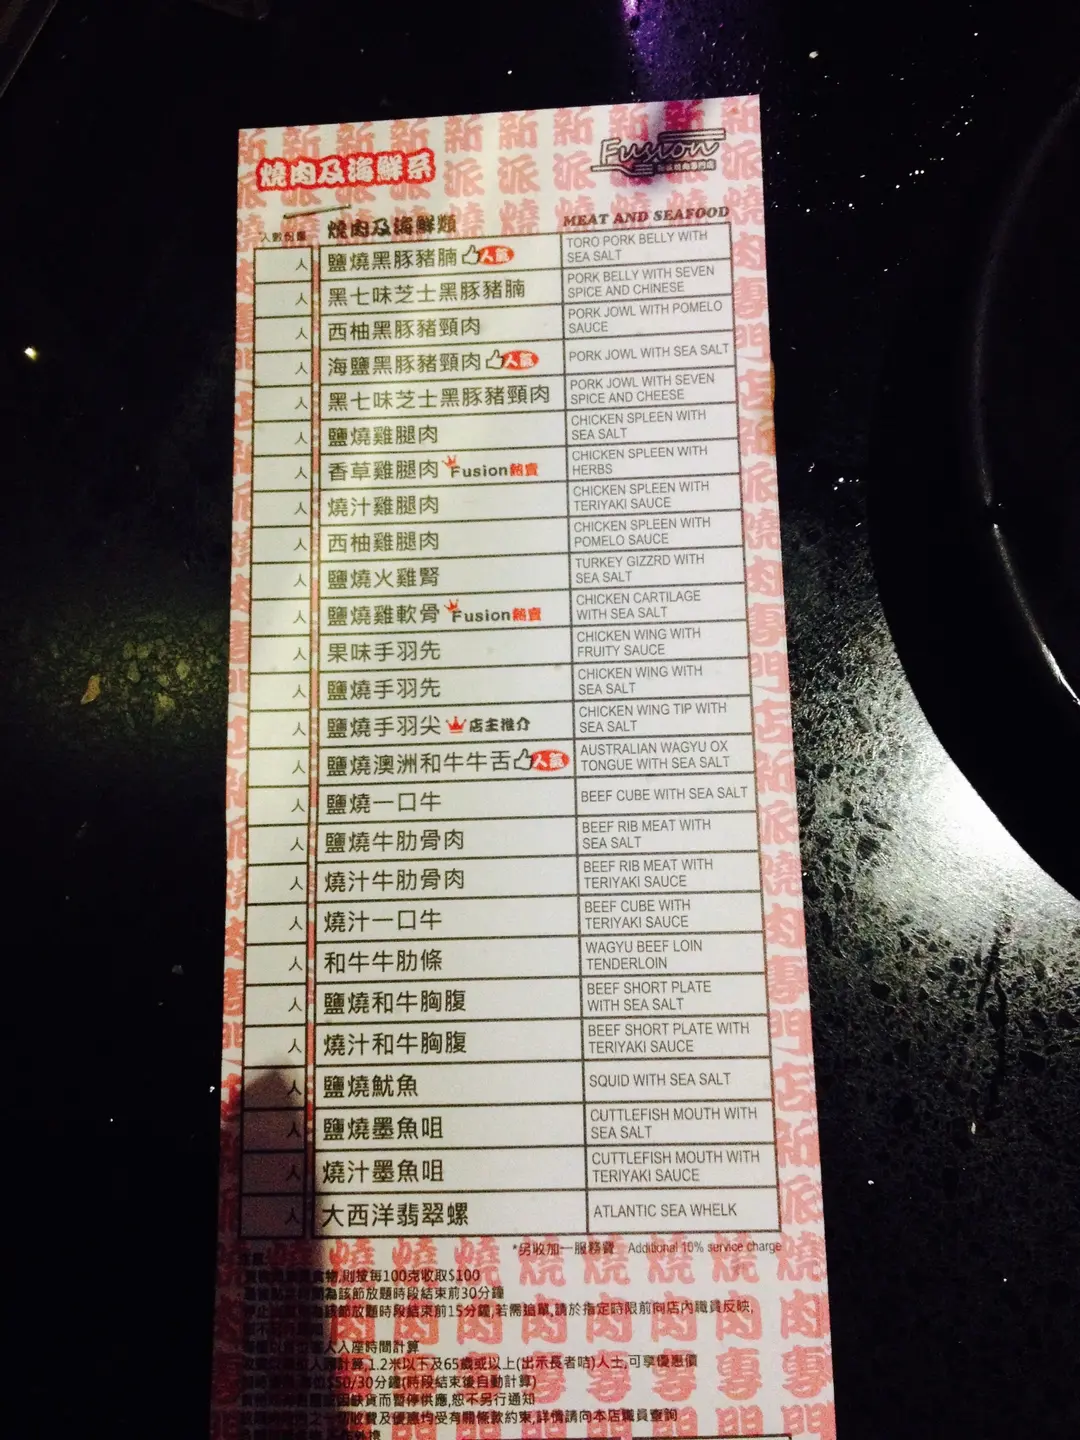 燒肉及海鮮系
Fusion
人數份量 燒肉及海鮮類 MEAT AND SEAFOOD
人 鹽燒黑豚豬腩 人氣 TORO PORK BELLY WITH
SEA SALT
人 黑七味芝士黑豚豬腩 PORK BELLY WITH SEVEN
SPICE AND CHINESE
人 西柚黑豚豬頸肉 PORK JOWL WITH POMELO
SAUCE
人 海鹽黑豚豬頸肉 人氣 PORK JOWL WITH SEA SALT
人 黑七味芝士黑豚豬頸肉 PORK JOWL WITH SEVEN
SPICE AND CHEESE
人 鹽燒雞腿肉 CHICKEN SPLEEN WITH
SEA SALT
人 香草雞腿肉 Fusion熱賣 CHICKEN SPLEEN WITH
HERBS
人 燒汁雞腿肉 CHICKEN SPLEEN WITH
TERIYAKI SAUCE
人 西柚雞腿肉 CHICKEN SPLEEN WITH
POMELO SAUCE
人 鹽燒火雞腎 TURKEY GIZZRD WITH
SEA SALT
人 鹽燒雞軟骨 Fusion熱賣 CHICKEN CARTILAGE
WITH SEA SALT
人 果味手羽先 CHICKEN WING WITH
FRUITY SAUCE
人 鹽燒手羽先 CHICKEN WING WITH
SEA SALT
人 鹽燒手羽尖 店主推介 CHICKEN WING TIP WITH
SEA SALT
人 鹽燒澳洲和牛牛舌 人氣 AUSTRALIAN WAGYU OX
TONGUE WITH SEA SALT
人 鹽燒一口牛 BEEF CUBE WITH SEA SALT
人 鹽燒牛肋骨肉 BEEF RIB MEAT WITH
SEA SALT
人 燒汁牛肋骨肉 BEEF RIB MEAT WITH
TERIYAKI SAUCE
人 燒汁一口牛 BEEF CUBE WITH
TERIYAKI SAUCE
人 和牛牛肋條 WAGYU BEEF LOIN
TENDERLOIN
人 鹽燒和牛胸腹 BEEF SHORT PLATE
WITH SEA SALT
人 燒汁和牛胸腹 BEEF SHORT PLATE WITH
TERIYAKI SAUCE
人 鹽燒魷魚 SQUID WITH SEA SALT
人 鹽燒墨魚咀 CUTTLEFISH MOUTH WITH
SEA SALT
人 燒汁墨魚咀 CUTTLEFISH MOUTH WITH
TERIYAKI SAUCE
人 大西洋翡翠螺 ATLANTIC SEA WHELK
*另收加一服務費 Additional 10% service charge
食物,則按每100克收取$100
為該節放題時段結束前30分鐘
為該節放題時段結束前15分鐘,若需追單,請於指定時限前向店內職員反映,
人入座時間計算
計算,1.2米以下及65歲或以上(出示長者咭)人士,可享優惠價
$50/30分鐘(時段結束後自動計算)
因缺貨而暫停供應,恕不另行通知
一切收費及優惠均受有關條款約束,詳情請向本店職員查詢